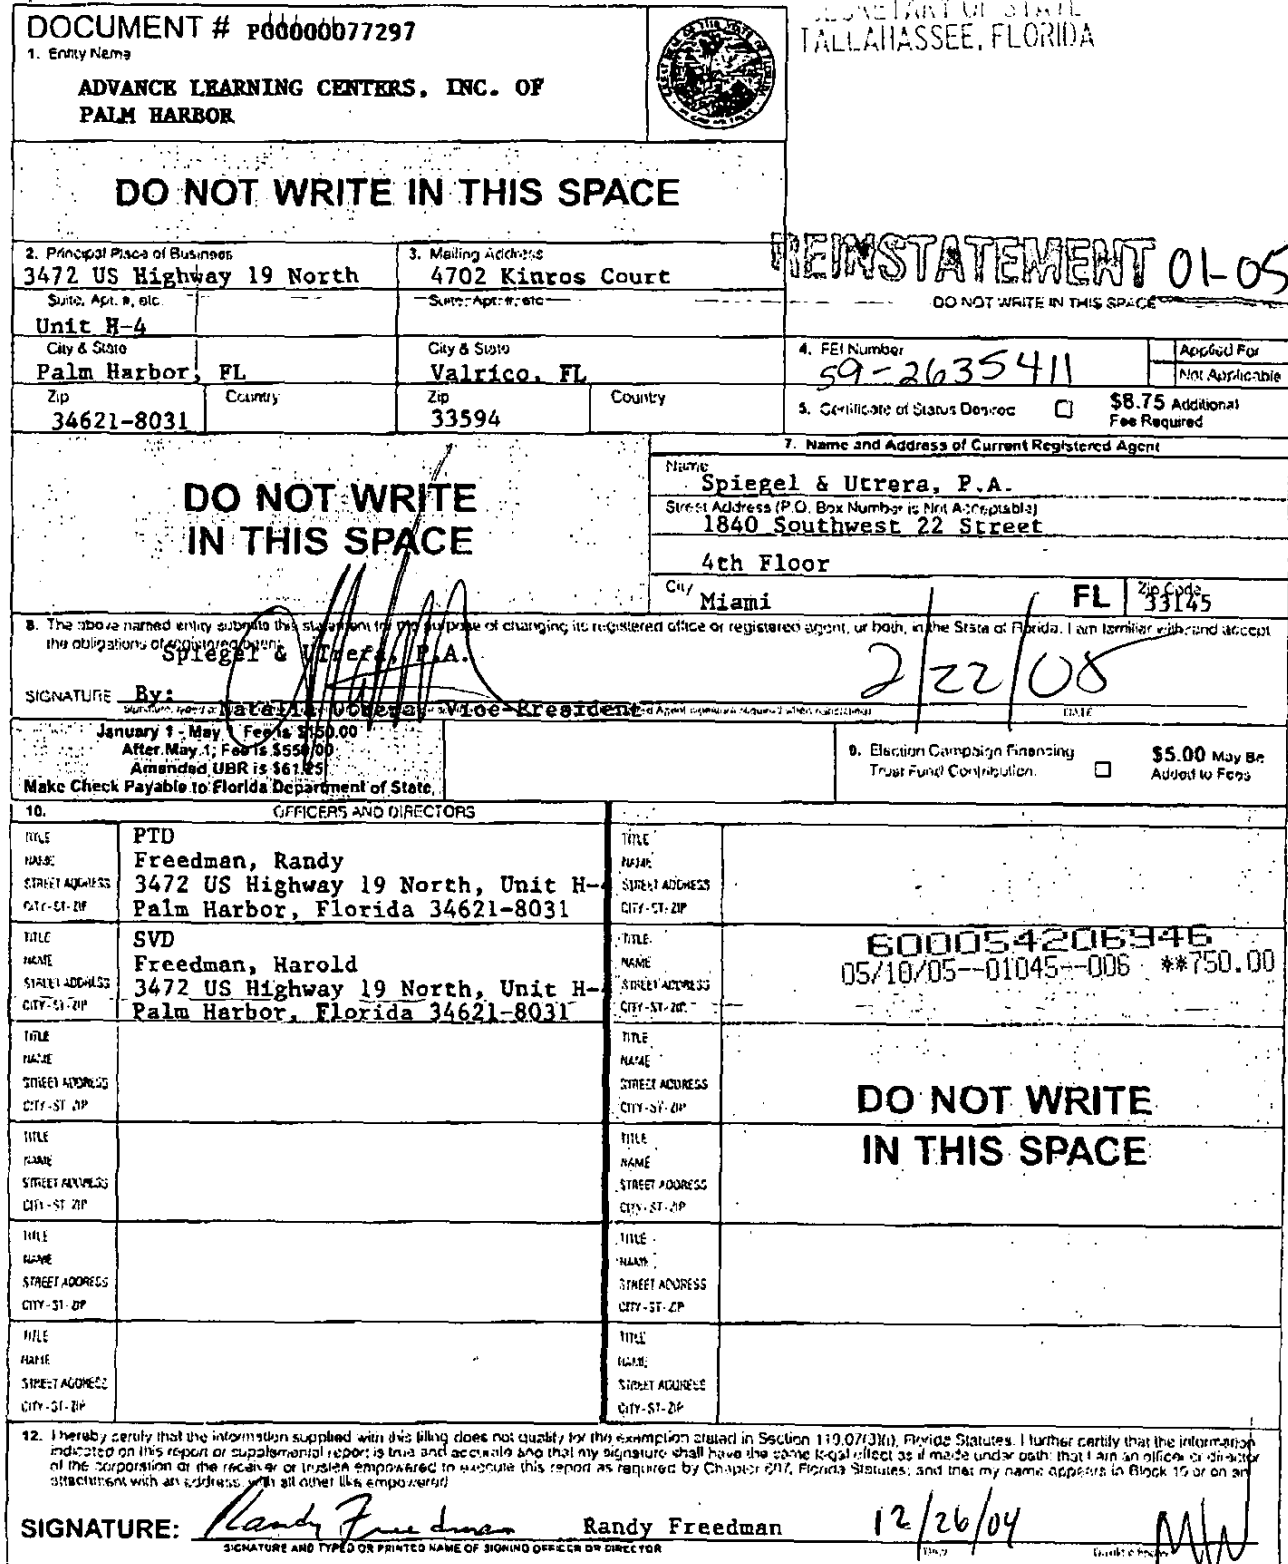 DOCUMENT # P00000077297
SECRETARY OF STATE
TALLAHASSEE, FLORIDA
1. Entity Name
ADVANCE LEARNING CENTERS, INC. OF
PALM HARBOR
DO NOT WRITE IN THIS SPACE
REINSTATEMENT 01-05
DO NOT WRITE IN THIS SPACE
2. Principal Place of Business
3472 US Highway 19 North
Suite, Apt. #, etc.
Unit H-4
City & State
Palm Harbor, FL
Zip
34621-8031
Country
3. Mailing Address
4702 Kinros Court
Suite, Apt. #, etc
City & State
Valrico, FL
Zip
33594
Country
4. FEI Number
59-2635411
Applied For
Not Applicable
5. Certificate of Status Desired
$8.75 Additional
Fee Required
DO NOT WRITE
IN THIS SPACE
7. Name and Address of Current Registered Agent
Name
Spiegel & Utrera, P.A.
Street Address (P.O. Box Number is Not Acceptable)
1840 Southwest 22 Street
4th Floor
City
Miami
FL
Zip Code
33145
8. The above named entity submits this statement for the purpose of changing its registered office or registered agent, or both, in the State of Florida. I am familiar with, and accept
the obligations of registered agent.
Spiegel & Utrera, P.A.
SIGNATURE By:
Natalia Utrera, Vice-President
2/22/05
DATE
January 1 - May 1 Fee is $150.00
After May 1, Fee is $550.00
Amended UBR is $61.25
Make Check Payable to Florida Department of State
9. Election Campaign Financing
Trust Fund Contribution.
$5.00 May Be
Added to Fees
10. OFFICERS AND DIRECTORS
TITLE PTD
NAME Freedman, Randy
STREET ADDRESS 3472 US Highway 19 North, Unit H-4
CITY-ST-ZIP Palm Harbor, Florida 34621-8031
TITLE SVD
NAME Freedman, Harold
STREET ADDRESS 3472 US Highway 19 North, Unit H-
CITY-ST-ZIP Palm Harbor, Florida 34621-8031
TITLE
NAME
STREET ADDRESS
CITY-ST-ZIP
TITLE
NAME
STREET ADDRESS
CITY-ST-ZIP
TITLE
NAME
STREET ADDRESS
CITY-ST-ZIP
TITLE
NAME
STREET ADDRESS
CITY-ST-ZIP
TITLE
NAME
STREET ADDRESS
CITY-ST-ZIP
TITLE
NAME
STREET ADDRESS
CITY-ST-ZIP
600054206946
05/10/05--01045--006 **750.00
TITLE
NAME
STREET ADDRESS
CITY-ST-ZIP
TITLE
NAME
STREET ADDRESS
CITY-ST-ZIP
DO NOT WRITE
IN THIS SPACE
TITLE
NAME
STREET ADDRESS
CITY-ST-ZIP
TITLE
NAME
STREET ADDRESS
CITY-ST-ZIP
12. I hereby certify that the information supplied with this filing does not qualify for the exemption stated in Section 119.07(3)(i), Florida Statutes. I further certify that the information
indicated on this report or supplemental report is true and accurate and that my signature shall have the same legal effect as if made under oath; that I am an officer or director
of the corporation or the receiver or trustee empowered to execute this report as required by Chapter 607, Florida Statutes; and that my name appears in Block 10 or on an
attachment with an address, with all other like empowered
SIGNATURE: Randy Freedman Randy Freedman 12/26/04
SIGNATURE AND TYPED OR PRINTED NAME OF SIGNING OFFICER OR DIRECTOR
Date